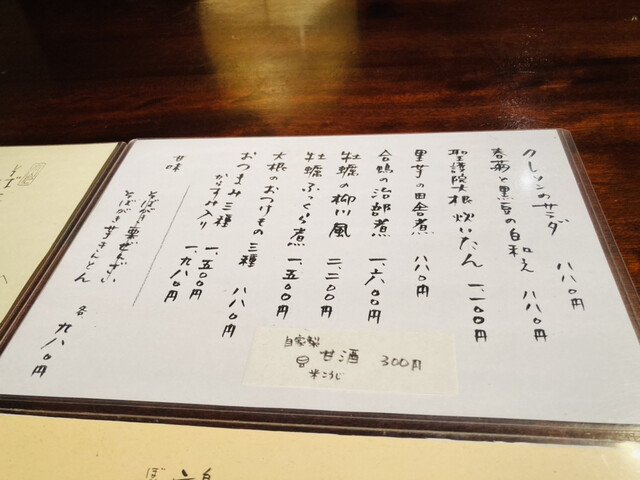 クレソンのサラダ 八八〇円
春菊と黒豆の白和え 八八〇円
聖護院大根炊いたん 一、一〇〇円
里芋の田舎煮 八八〇円
合鴨の治部煮 一、六〇〇円
牡蠣の柳川風 二、二〇〇円
牡蠣ふっくら煮 一、五〇〇円
大根のおつけもの 三種 八八〇円
おつまみ三種 一、五〇〇円
からすみ入り 一、九八〇円
甘味
そばがき栗ぜんざい
そばがき芋きんとん 各 九八〇円
自家製
甘酒 300円
米こうじ